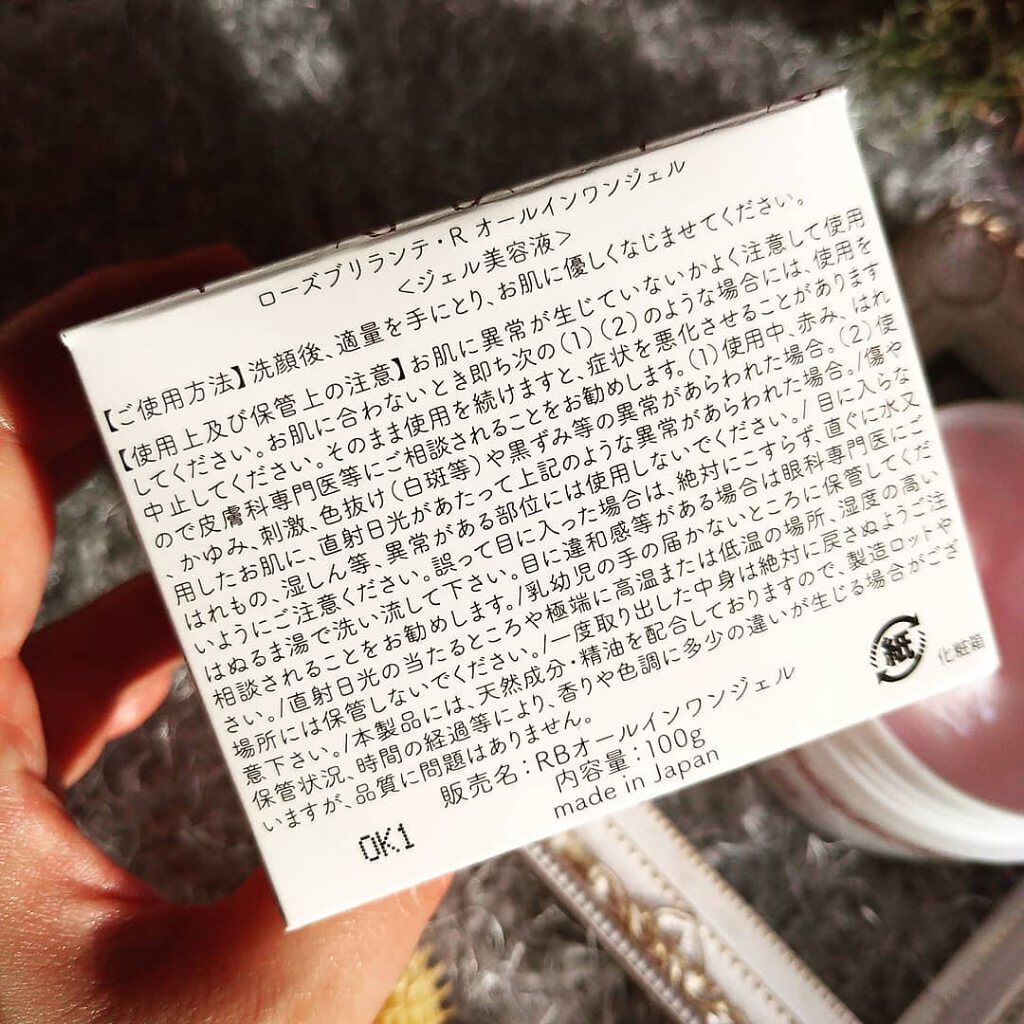 ローズブリランテ・R オールインワンジェル
<ジェル美容液>
【ご使用方法】洗顔後、適量を手にとり、お肌に優しくなじませてください。
【使用上及び保管上の注意】お肌に異常が生じていないかよく注意して使用
してください。お肌に合わないとき即ち次の(1)(2)のような場合には、使用を
中止してください。そのまま使用を続けますと、症状を悪化させることがあります
ので皮膚科専門医等にご相談されることをお勧めします。(1)使用中、赤み、はれ
、かゆみ、刺激、色抜け(白斑等)や黒ずみ等の異常があらわれた場合。(2)使
用したお肌に、直射日光があたって上記のような異常があらわれた場合。/傷や
はれもの、湿しん等、異常がある部位には使用しないでください。/目に入らな
いようにご注意ください。誤って目に入った場合は、絶対にこすらず、直ぐに水又
はぬるま湯で洗い流して下さい。目に違和感等がある場合は眼科専門医にご
相談されることをお勧めします。/乳幼児の手の届かないところに保管してくだ
さい。/直射日光の当たるところや極端に高温または低温の場所、湿度の高い
場所には保管しないでください。/一度取り出した中身は絶対に戻さぬようご注
意下さい。/本製品には、天然成分・精油を配合しておりますので、製造ロットや
保管状況、時間の経過等により、香りや色調に多少の違いが生じる場合がござ
いますが、品質に問題はありません。
販売名:RBオールインワンジェル
内容量:100g
made in Japan
紙
化粧箱
OK1